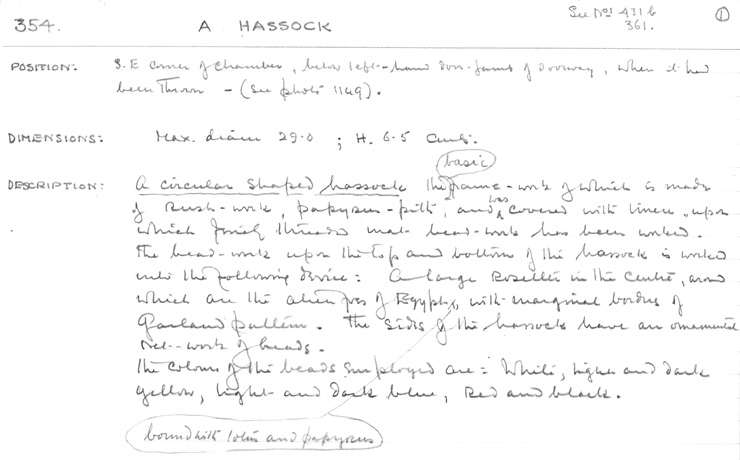 See Nos 431b
361.
1
354. A HASSOCK
POSITION: S. E corner of chamber, below left-hand door-jamb of doorway, where it had
been thrown - (See photo 1149).
DIMENSIONS: Max. diam 29.0 ; H. 6.5 Cms.
basic
DESCRIPTION: A circular shaped hassock the frame-work of which is made
of Rush-work, papyrus-pith, and was covered with linen, upon
which finely threaded bead-work has been worked.
The bead-work upon the top and bottom of the hassock is worked
into the following device: A large Rosette in the centre, around
which are the alien foes of Egypt, with marginal borders of
Garland pattern. The sides of the hassock have an ornamental
Net-work of beads.
The colours of the beads employed are: White, light and dark
yellow, light and dark blue, Red and black.
bound with lotus and papyrus